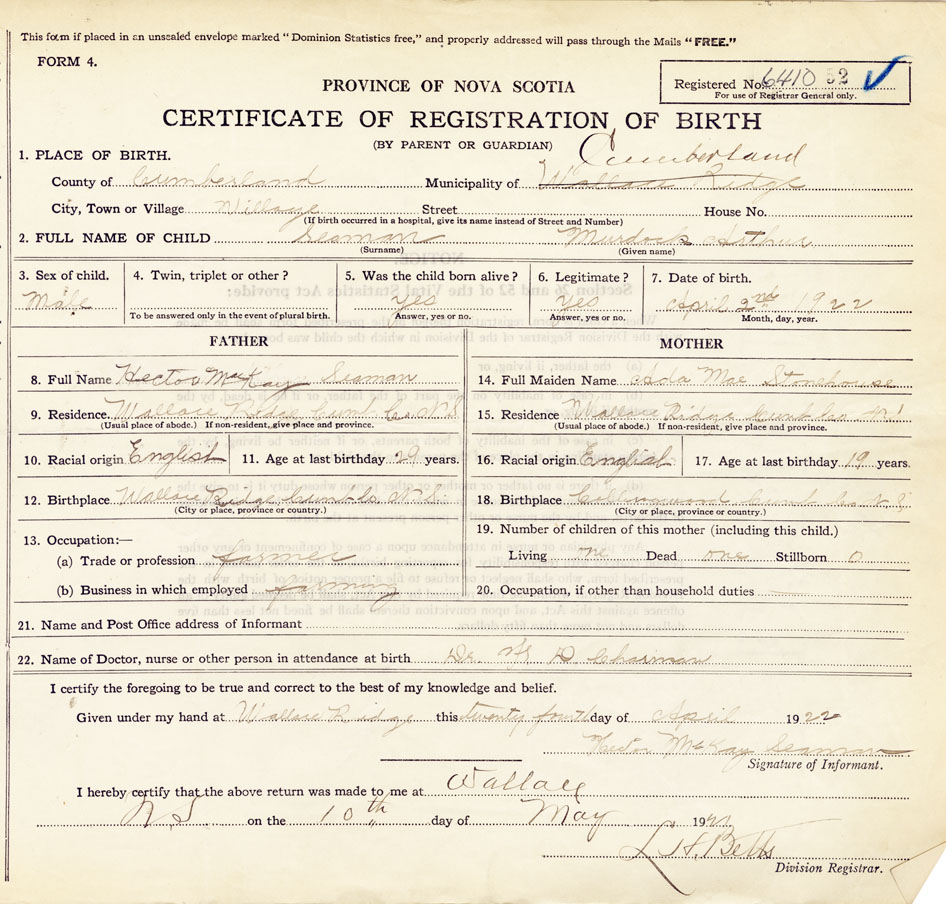 This form if placed in an unsealed envelope marked "Dominion Statistics free," and properly addressed will pass through the Mails "FREE."
FORM 4.
PROVINCE OF NOVA SCOTIA
Registered No. 6410 52
For use of Registrar General only.
CERTIFICATE OF REGISTRATION OF BIRTH
(BY PARENT OR GUARDIAN)
1. PLACE OF BIRTH.
Cumberland
County of Cumberland Municipality of Wallace Ridge
City, Town or Village Village Street House No.
(If birth occurred in a hospital, give its name instead of Street and Number)
2. FULL NAME OF CHILD Seaman Murdock Arthur
(Surname) (Given name)
3. Sex of child. 4. Twin, triplet or other? 5. Was the child born alive? 6. Legitimate? 7. Date of birth.
Male Yes Yes April 2nd 1922
To be answered only in the event of plural birth. Answer, yes or no. Answer, yes or no. Month, day, year.
FATHER
8. Full Name Hector MacKay Seaman
9. Residence Wallace Ridge Cumb Co. N.S.
(Usual place of abode.) If non-resident, give place and province.
10. Racial origin English 11. Age at last birthday 29 years.
12. Birthplace Wallace Ridge Cumb Co N.S.
(City or place, province or country.)
13. Occupation:—
(a) Trade or profession farmer
(b) Business in which employed farming
MOTHER
14. Full Maiden Name Ada Mae Stonehouse
15. Residence Wallace Ridge Cumb Co
(Usual place of abode.) If non-resident, give place and province.
16. Racial origin English 17. Age at last birthday 19 years.
18. Birthplace Collingwood Cumb
(City or place, province or country.)
19. Number of children of this mother (including this child.)
Living Dead one Stillborn 0
20. Occupation, if other than household duties
21. Name and Post Office address of Informant
22. Name of Doctor, nurse or other person in attendance at birth Dr. D
I certify the foregoing to be true and correct to the best of my knowledge and belief.
Given under my hand at Wallace Ridge this twenty fourth day of April 1922
Hector McKay Seaman
Signature of Informant.
I hereby certify that the above return was made to me at Wallace
N.S on the 10th day of May 192
L H. Betts
Division Registrar.